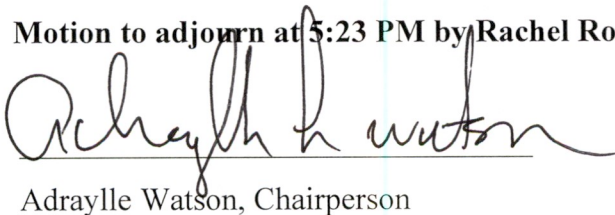 Motion to adjourn at 5:23 PM by Rachel Ro
Adraylle L Watson
Adraylle Watson, Chairperson